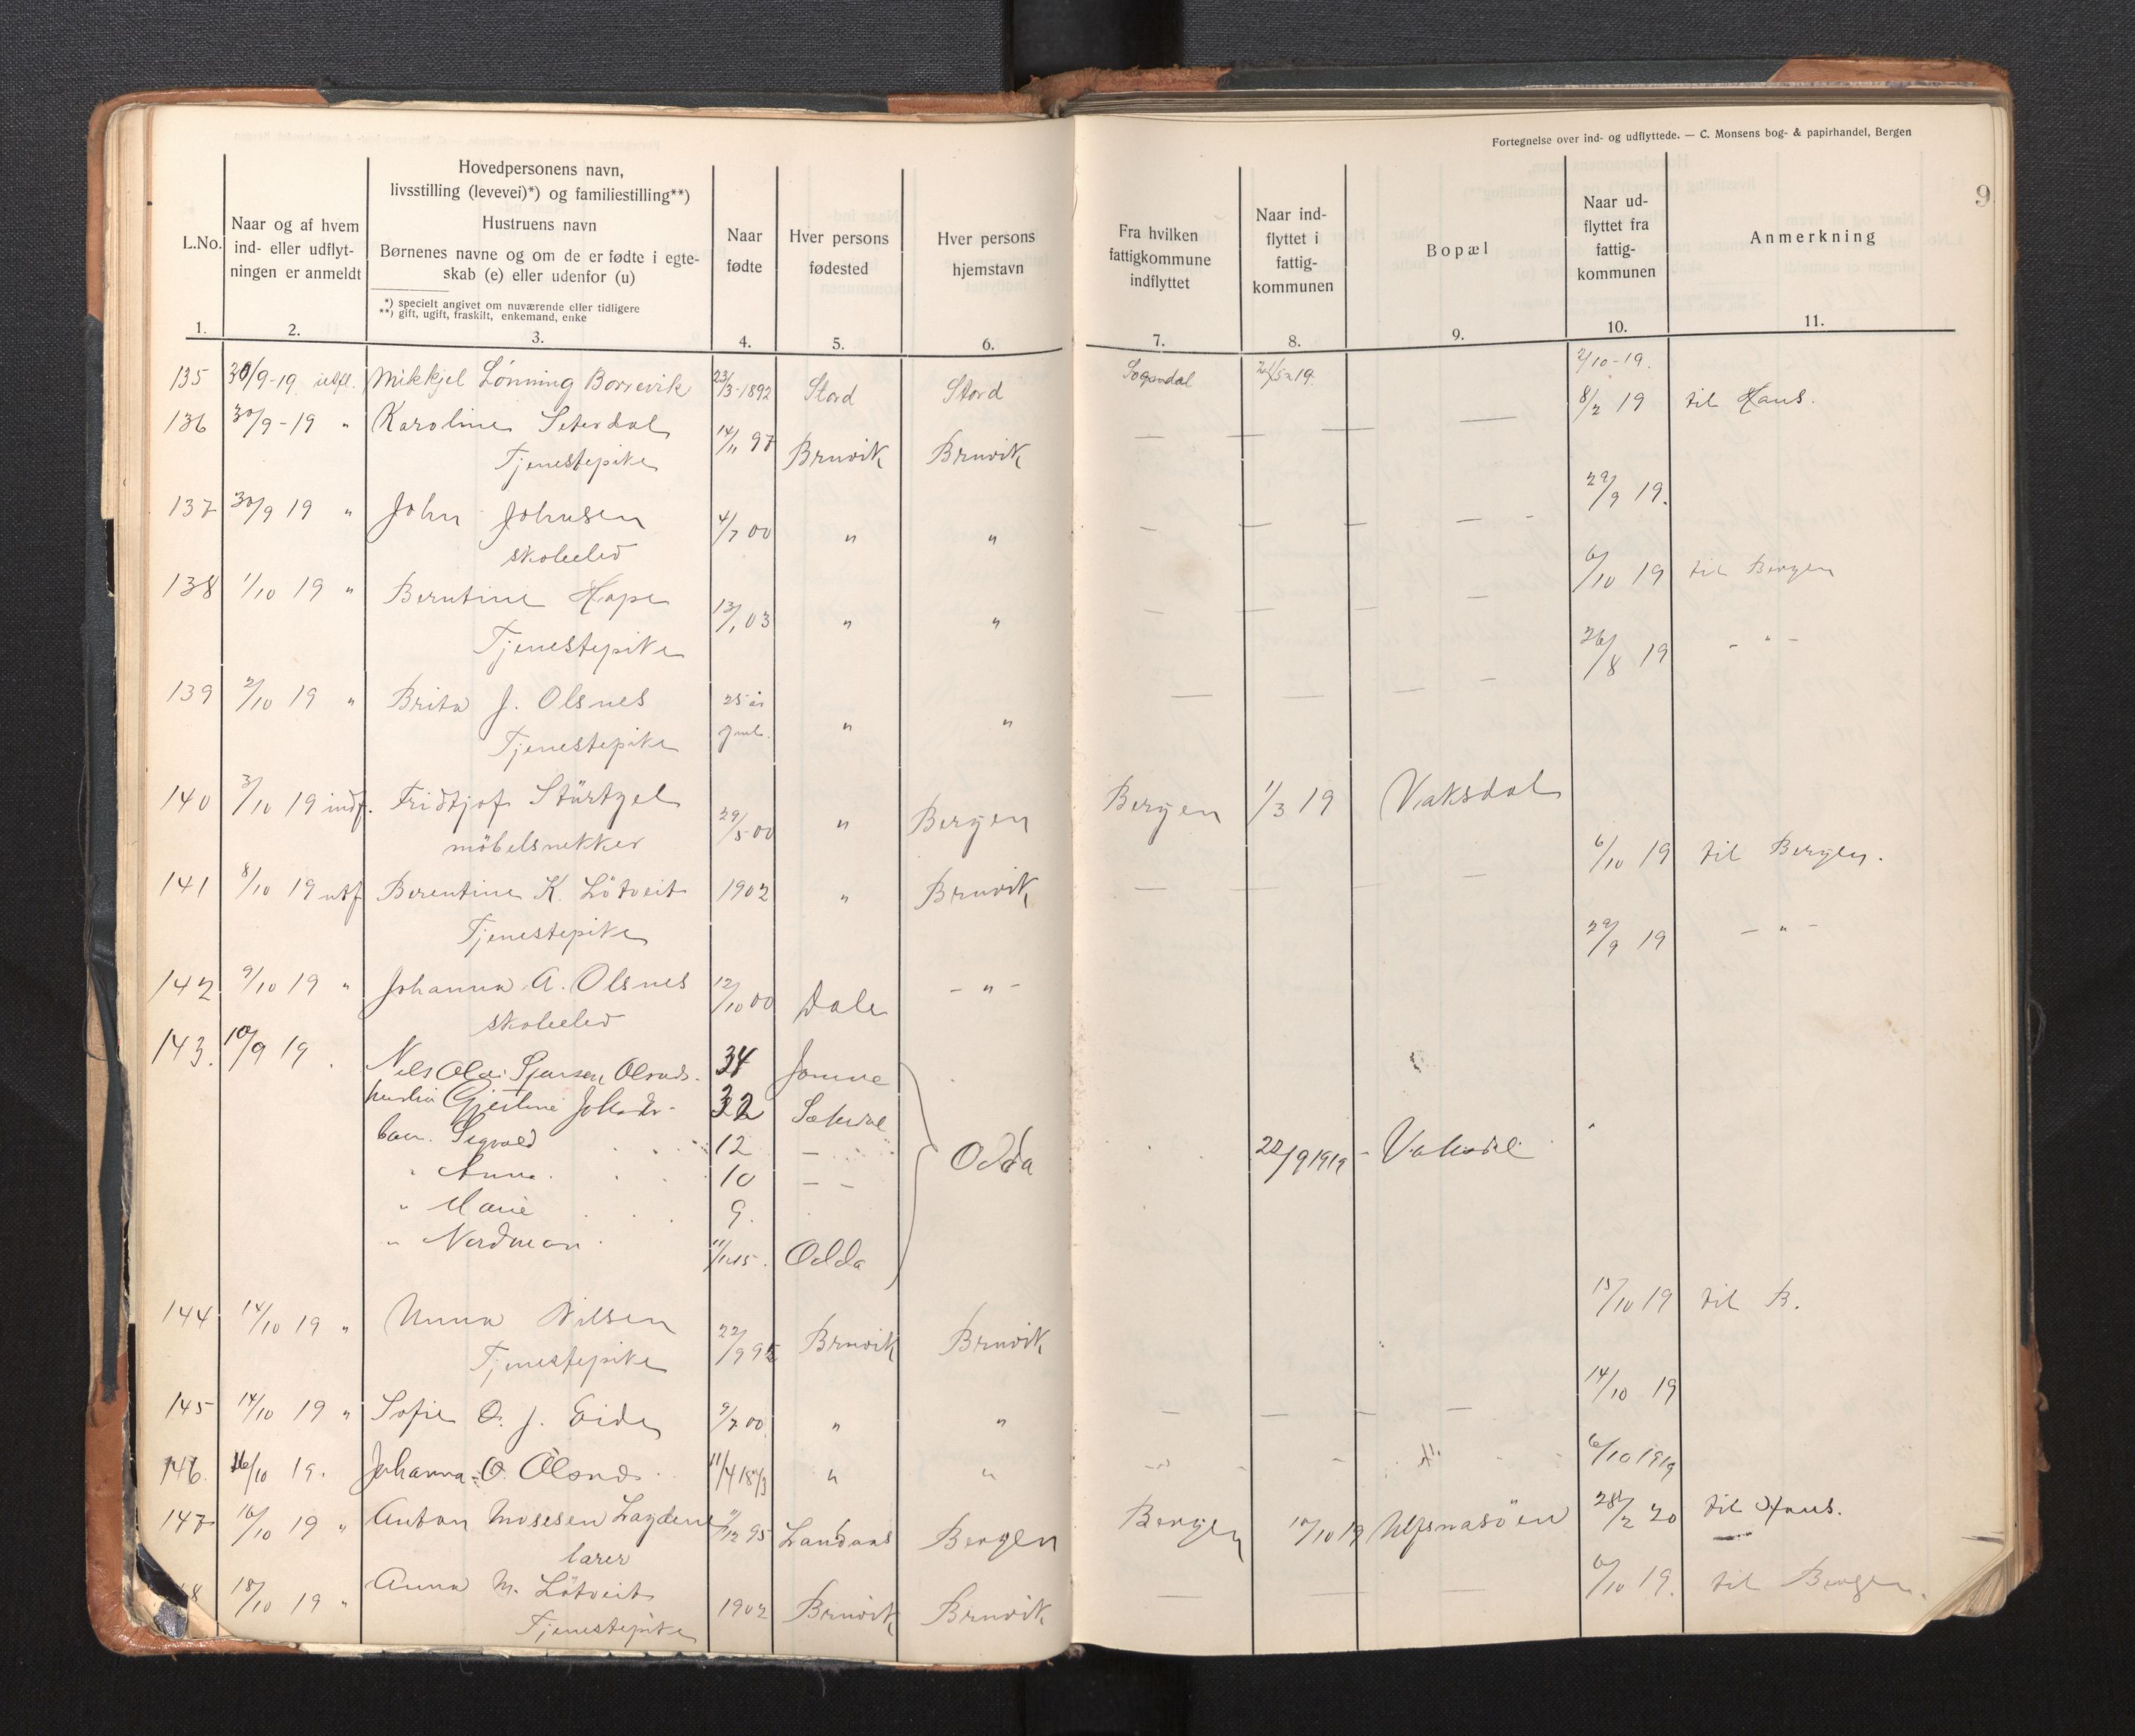 Fortegnelse over ind- og udflyttede. — C. Monsens bog- & papirhandel, Bergen
9
L.No.
Naar og af hvem
ind- eller udflyt-
ningen er anmeldt
Hovedpersonens navn,
livsstilling (levevei)*) og familiestilling**)
Hustruens navn
Børnenes navne og om de er fødte i egte-
skab (e) eller udenfor (u)
*) specielt angivet om nuværende eller tidligere
**) gift, ugift, fraskilt, enkemand, enke
Naar
fødte
Hver persons
fødested
Hver persons
hjemstavn
Fra hvilken
fattigkommune
indflyttet
Naar ind-
flyttet i
fattig-
kommunen
Bopæl
Naar ud-
flyttet fra
fattig-
kommunen
Anmerkning
1. 2. 3. 4. 5. 6. 7. 8. 9. 10. 11.
135 30/9-19 utfl. Mikkjel Lønning Borrevik 23/3-1892 Stord Stord Sogndal 2/10-19.
136 30/9-19 " Karoline Seterdal 14/11 97 Bruvik Bruvik — — — — 8/2 19 til Haus.
Tjenestepike
137 30/9 19 " John Johnsen 4/7 00 " " — — — — 29/9 19.
skoleelev
138 1/10 19 " Berntine Hope 13/1 03 " " — — — — 6/10 19 til Bergen
Tjenestepike
139 2/10 19 " Brita J. Olsnes 25 år " " — — — — 26/8 19 - " -
Tjenestepike gml.
140 3/10 19 indf. Fridtjof Stürtzel 29/5 00 " Bergen Bergen 1/3 19 Vaksdal
möbelsnekker
141 8/10 19 utf Berentine K. Lötveit 1902 " Bruvik — — — 6/10 19 til Bergen.
Tjenestepike
142 9/10 19 " Johanna A. Olsnes 12/10 00 Dale - " - 29/9 19 - " -
skoleelev
143. 10/9 19. Nels 34
32
Sigvald 12 —
" Anna. 10 — — Odda 22/9 1919 - Vaksdal
" Marie 9.
" Nordman 11/11 15. Odda
144 14/10 19 " Anna Nilsen 22/9 95 Bruvik Bruvik 15/10 19 til B.
Tjenestepike
145 14/10 19 " Sofie O. J. Eide 9/7 00 " " — — — — 14/10 19
146. 16/10 19. Johanna O. Olsnes " " 6/10 1919
147 16/10 19 " Anton Mosesen 95 Landaas Bergen Bergen 10/10 19 Ulfsnasöen 28/2 20 til Haus.
lærer
8 18/10 19 " Anna M. Lötveit 1902 Bruvik Bruvik — — — 6/10 19. til Bergen.
Tjenestepike